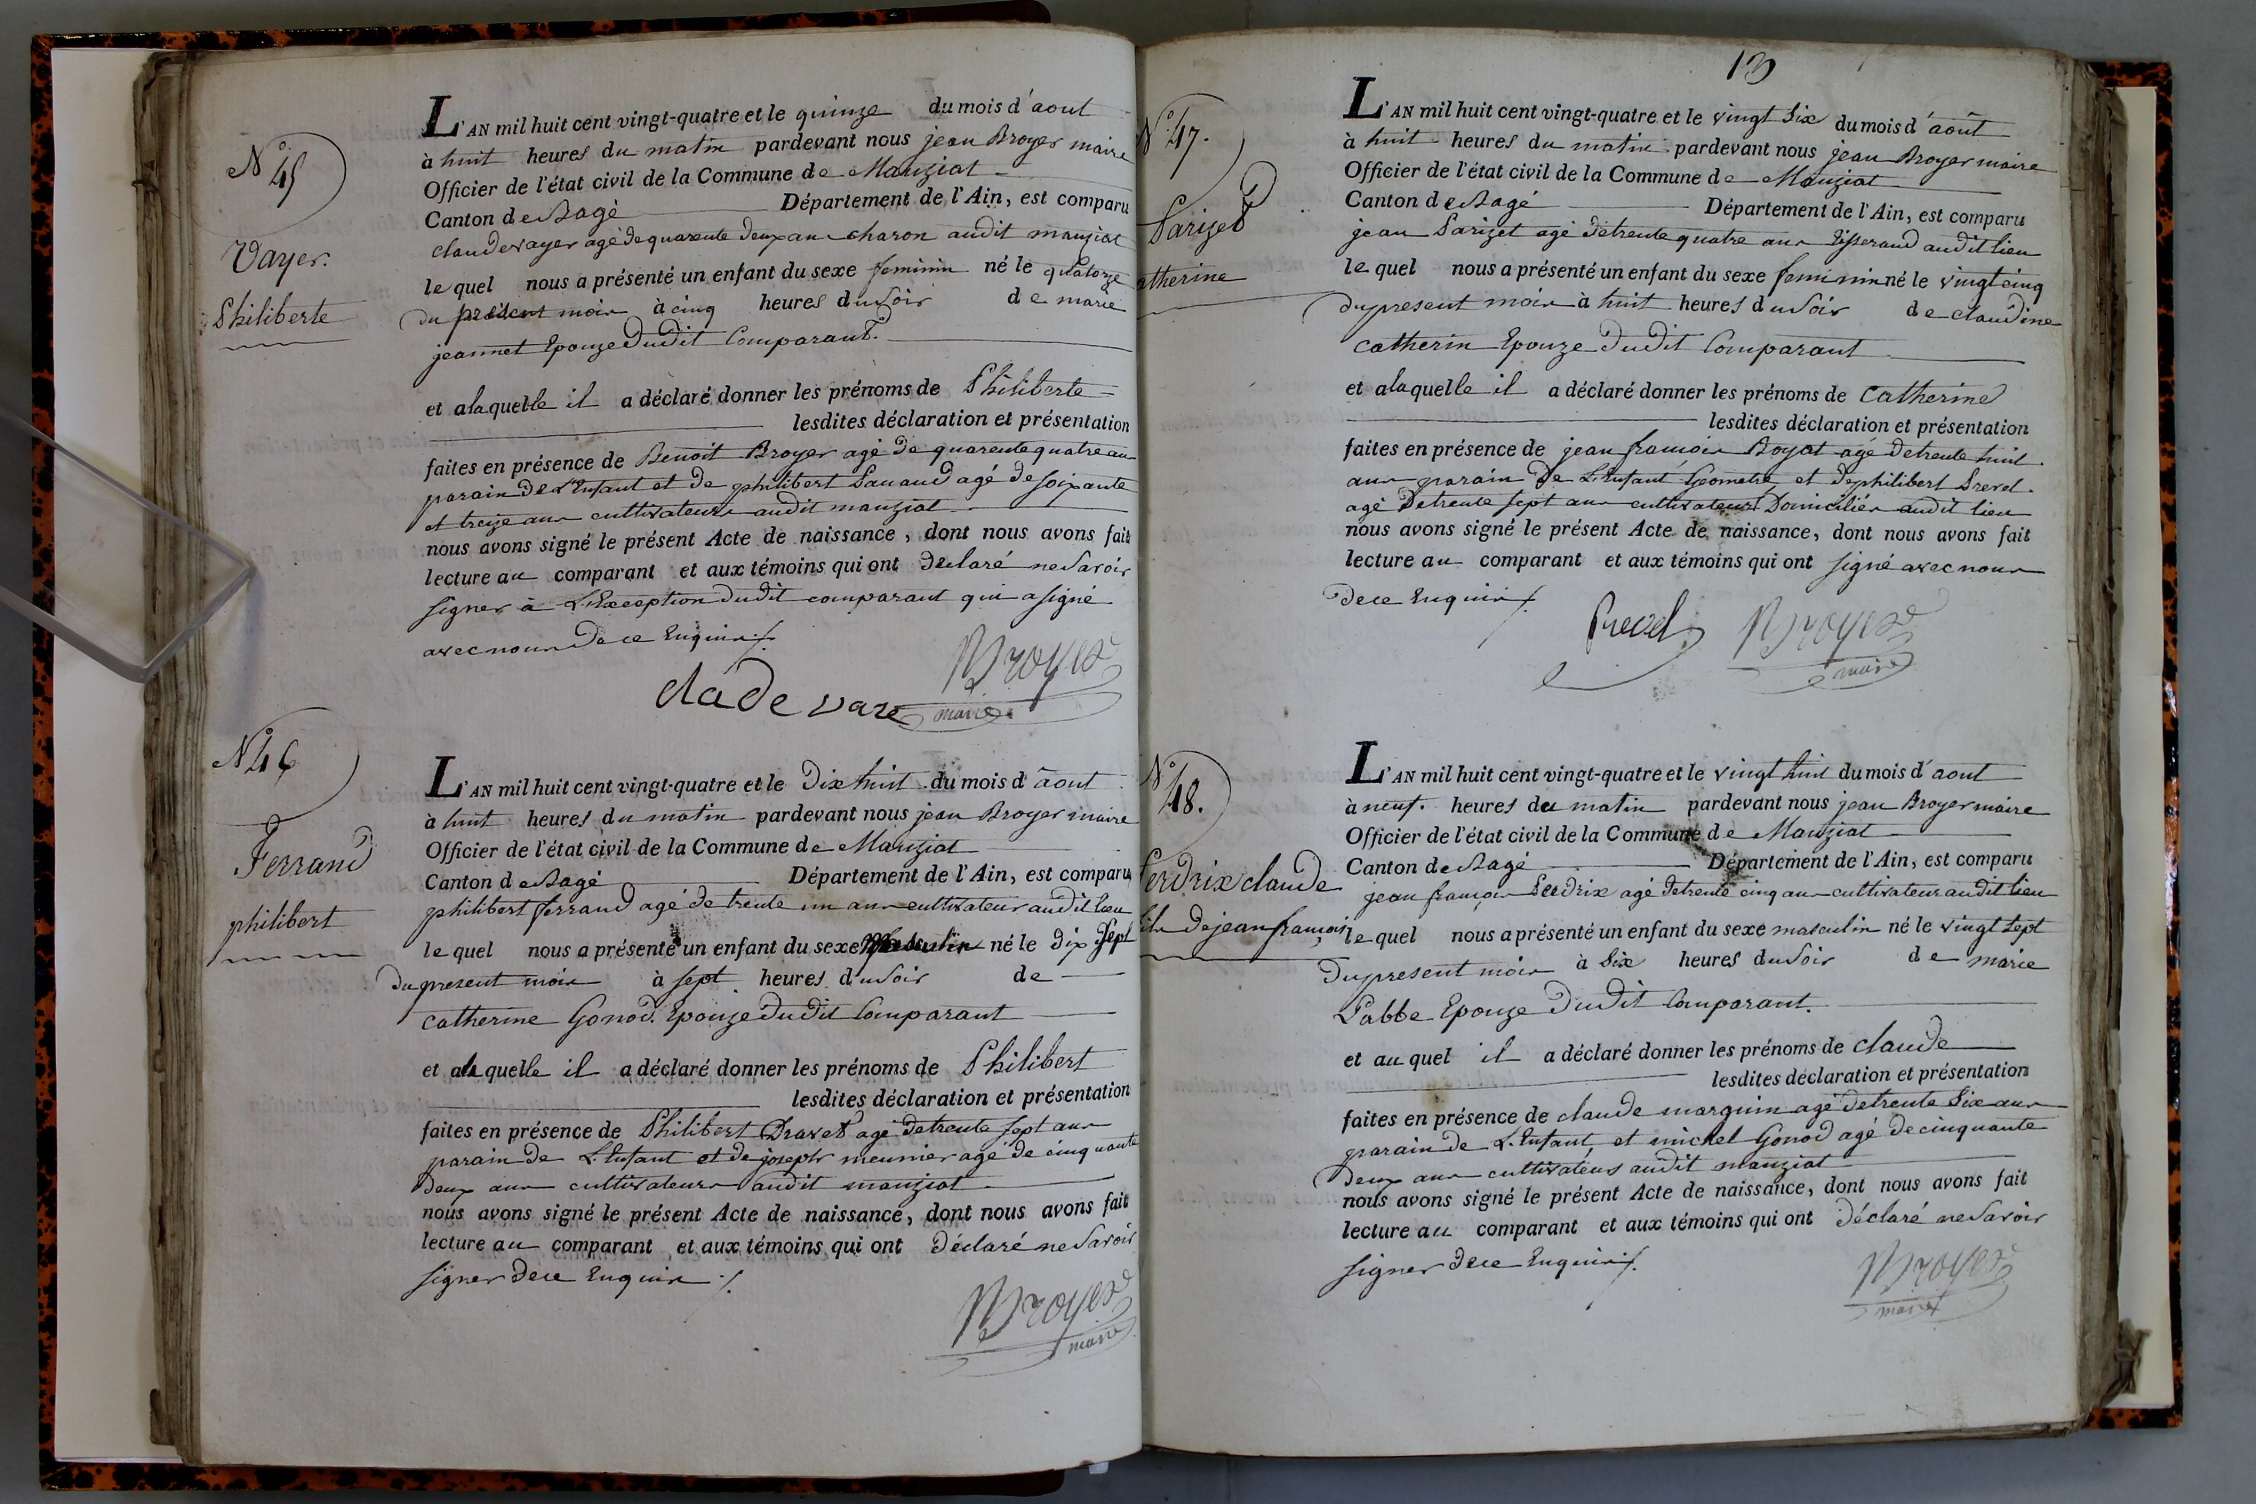 N.o 45
Vayer.
Philiberte
L'AN mil huit cent vingt-quatre et le quinze du mois d'aout
à huit heures du matin pardevant nous jean Broyer maire
Officier de l'état civil de la Commune de Manziat
Canton de Bagé Département de l'Ain, est comparu
claude vayer agé de quarente deux ans charon audit manziat
le quel nous a présenté un enfant du sexe feminin né le quatorze
du présent mois à cinq heures du soir de marie
jeannet Epouze dudit Comparant.
et a laquelle il a déclaré donner les prénoms de Philiberte
lesdites déclaration et présentation
faites en présence de Benoit Broyer agé de quarente quatre ans
parain de L'Enfant et de philibert Pauaud agé de soixante
et treize ans cultivateurs audit manziat
nous avons signé le présent Acte de naissance, dont nous avons fait
lecture au comparant et aux témoins qui ont declaré ne savoir
signer à L'Exception dudit comparant qui a signé
avec nous de ce Enquis ./.
clade vare Broyer
maire
N.o 46
Ferrand
philibert
L'AN mil huit cent vingt-quatre et le dix huit du mois d'aout
à huit heures du matin pardevant nous jean Broyer maire
Officier de l'état civil de la Commune de Manziat
Canton de Bagé Département de l'Ain, est comparu
philibert ferrand agé de trente un ans cultivateur audit lieu
le quel nous a présenté un enfant du sexe Masculin né le dix sept
du present mois à sept heures du soir de
catherine Gonod. Epouze dudit Comparant
et a la quelle il a déclaré donner les prénoms de Philibert
lesdites déclaration et présentation
faites en présence de Philibert Dravet agé de trente sept ans
parain de L'Enfant et de joseph meunier agé de cinquante
deux ans cultivateurs audit manziat
nous avons signé le présent Acte de naissance, dont nous avons fait
lecture au comparant et aux témoins qui ont déclaré ne savoir
signer de ce Enquis ./.
Broyer
maire
13
N.o 47.
Parizet
atherine
L'AN mil huit cent vingt-quatre et le vingt six du mois d'août
à huit heures du matin pardevant nous jean Broyer maire
Officier de l'état civil de la Commune de Manziat
Canton de Bagé Département de l'Ain, est comparu
jean Parizet agé de trente quatre ans tisserand audit lieu
le quel nous a présenté un enfant du sexe feminin né le vingt cinq
du present mois à huit heures du soir de claudine
catherin Epouze dudit Comparant
et a laquelle il a déclaré donner les prénoms de catherine
lesdites déclaration et présentation
faites en présence de jean françois Boyat agé de trente huit
ans parain de L'Enfant Geometre et de philibert Prevel.
agé de trente sept ans cultivateur Domiciliés audit lieu
nous avons signé le présent Acte de naissance, dont nous avons fait
lecture au comparant et aux témoins qui ont signé avec nous
de ce Enquis ./.
Prevel Broyer
maire
N.o 48.
Perdrix claude
fils de jean françois
L'AN mil huit cent vingt-quatre et le vingt huit du mois d'aout
à neuf. heures du matin pardevant nous jean Broyer maire
Officier de l'état civil de la Commune de Manziat
Canton de Bagé Département de l'Ain, est comparu
jean françois Perdrix agé de trente cinq ans cultivateur audit lieu
le quel nous a présenté un enfant du sexe masculin né le vingt sept
du present mois à six heures du soir de marie
Labbe Epouze dudit Comparant.
et au quel il a déclaré donner les prénoms de claude
lesdites déclaration et présentation
faites en présence de claude marguin agé de trente six ans
parain de L'Enfant et michel Gonod agé de cinquante
deux ans cultivateurs audit manziat
nous avons signé le présent Acte de naissance, dont nous avons fait
lecture au comparant et aux témoins qui ont déclaré ne savoir
signer de ce Enquis ./.
Broyer
maire